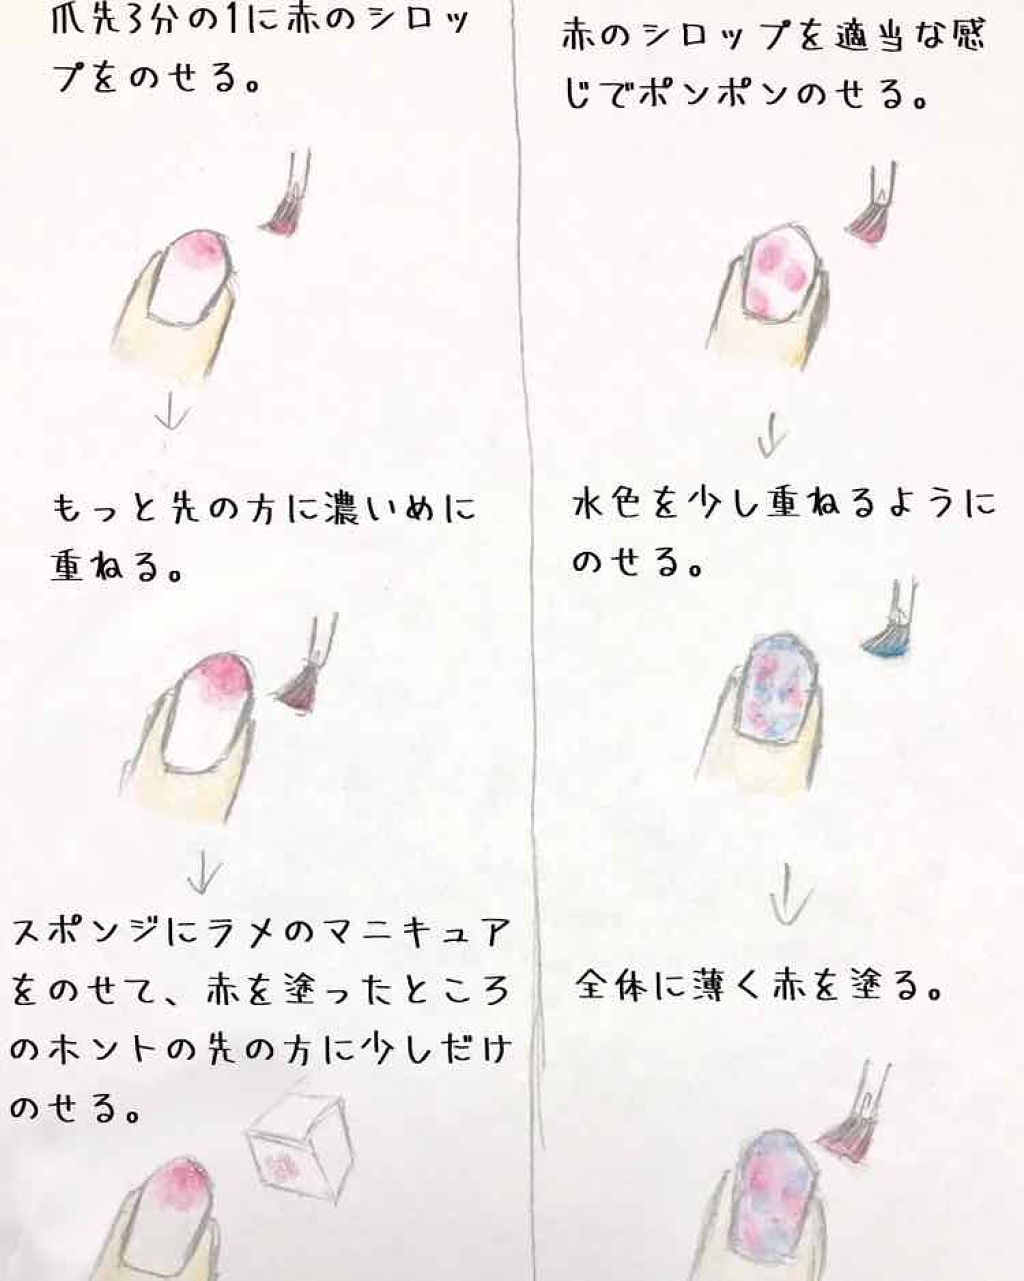 爪先3分の1に赤のシロッ
プをのせる。
もっと先の方に濃いめに
重ねる。
スポンジにラメのマニキュア
をのせて、赤を塗ったところ
のホントの先の方に少しだけ
のせる。
赤のシロップを適当な感
じでポンポンのせる。
水色を少し重ねるように
のせる。
全体に薄く赤を塗る。